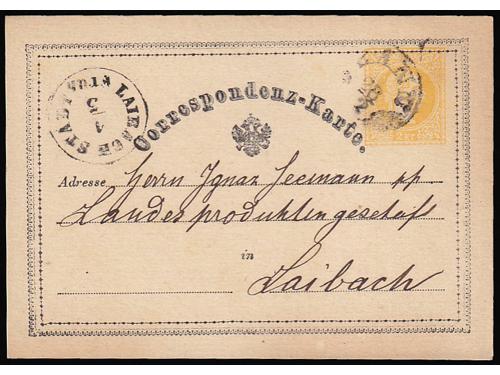 LAIBACH STADT
4/5
Correspondenz-Karte.
Adresse Herrn Ignaz Seemann pp.
Landesproduktengeschäft
in
Laibach